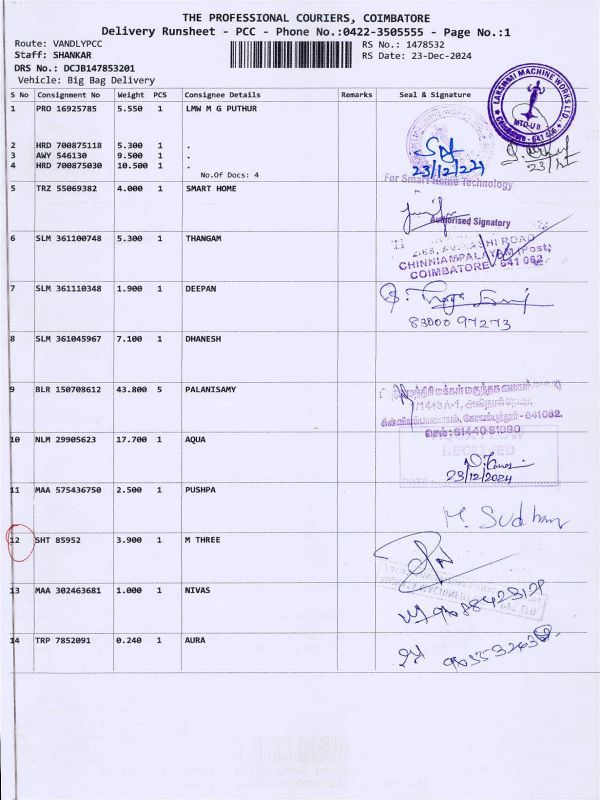 THE PROFESSIONAL COURIERS, COIMBATORE
Delivery Runsheet - PCC - Phone No.:0422-3505555 - Page No.:1
Route: VANDLYPCC
RS No.: 1478532
Staff: SHANKAR
RS Date: 23-Dec-2024
DRS No.: DCJB147853201
Vehicle: Big Bag Delivery
S No Consignment No Weight PCS Consignee Details Remarks Seal & Signature
1 PRO 16925785 5.550 1 LMW M G PUTHUR
LAKSHMI MACHINE WORKS LTD.
2 HRD 700875118 5.300 1 .
3 AWY 546130 9.500 1 .
4 HRD 700875030 10.500 1 .
23/12/2024
No.Of Docs: 4
For Smart Home Technology
5 TRZ 55069382 4.000 1 SMART HOME
Authorised Signatory
6 SLM 361100748 5.300 1 THANGAM
CHINNIAMPALAYAM (Post)
COIMBATORE - 641 062
7 SLM 361110348 1.900 1 DEEPAN
83000 97273
8 SLM 361045967 7.100 1 DHANESH
9 BLR 150708612 43.800 5 PALANISAMY
10 NLM 29905623 17.700 1 AQUA
RECEIVED
23/12/2024
11 MAA 575436750 2.500 1 PUSHPA
12 SHT 85952 3.900 1 M THREE
13 MAA 302463681 1.000 1 NIVAS
14 TRP 7852091 0.240 1 AURA